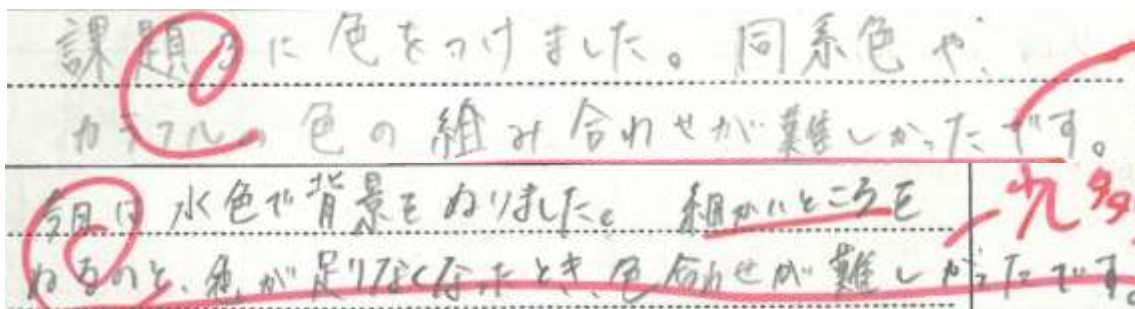 課題③に色をつけました。同系色や、
カラフルの色の組み合わせが難しかったです。
今日は水色で背景をぬりました。細かいところを
ぬるのと、色が足りなくなったとき、色合わせが難しかったです。